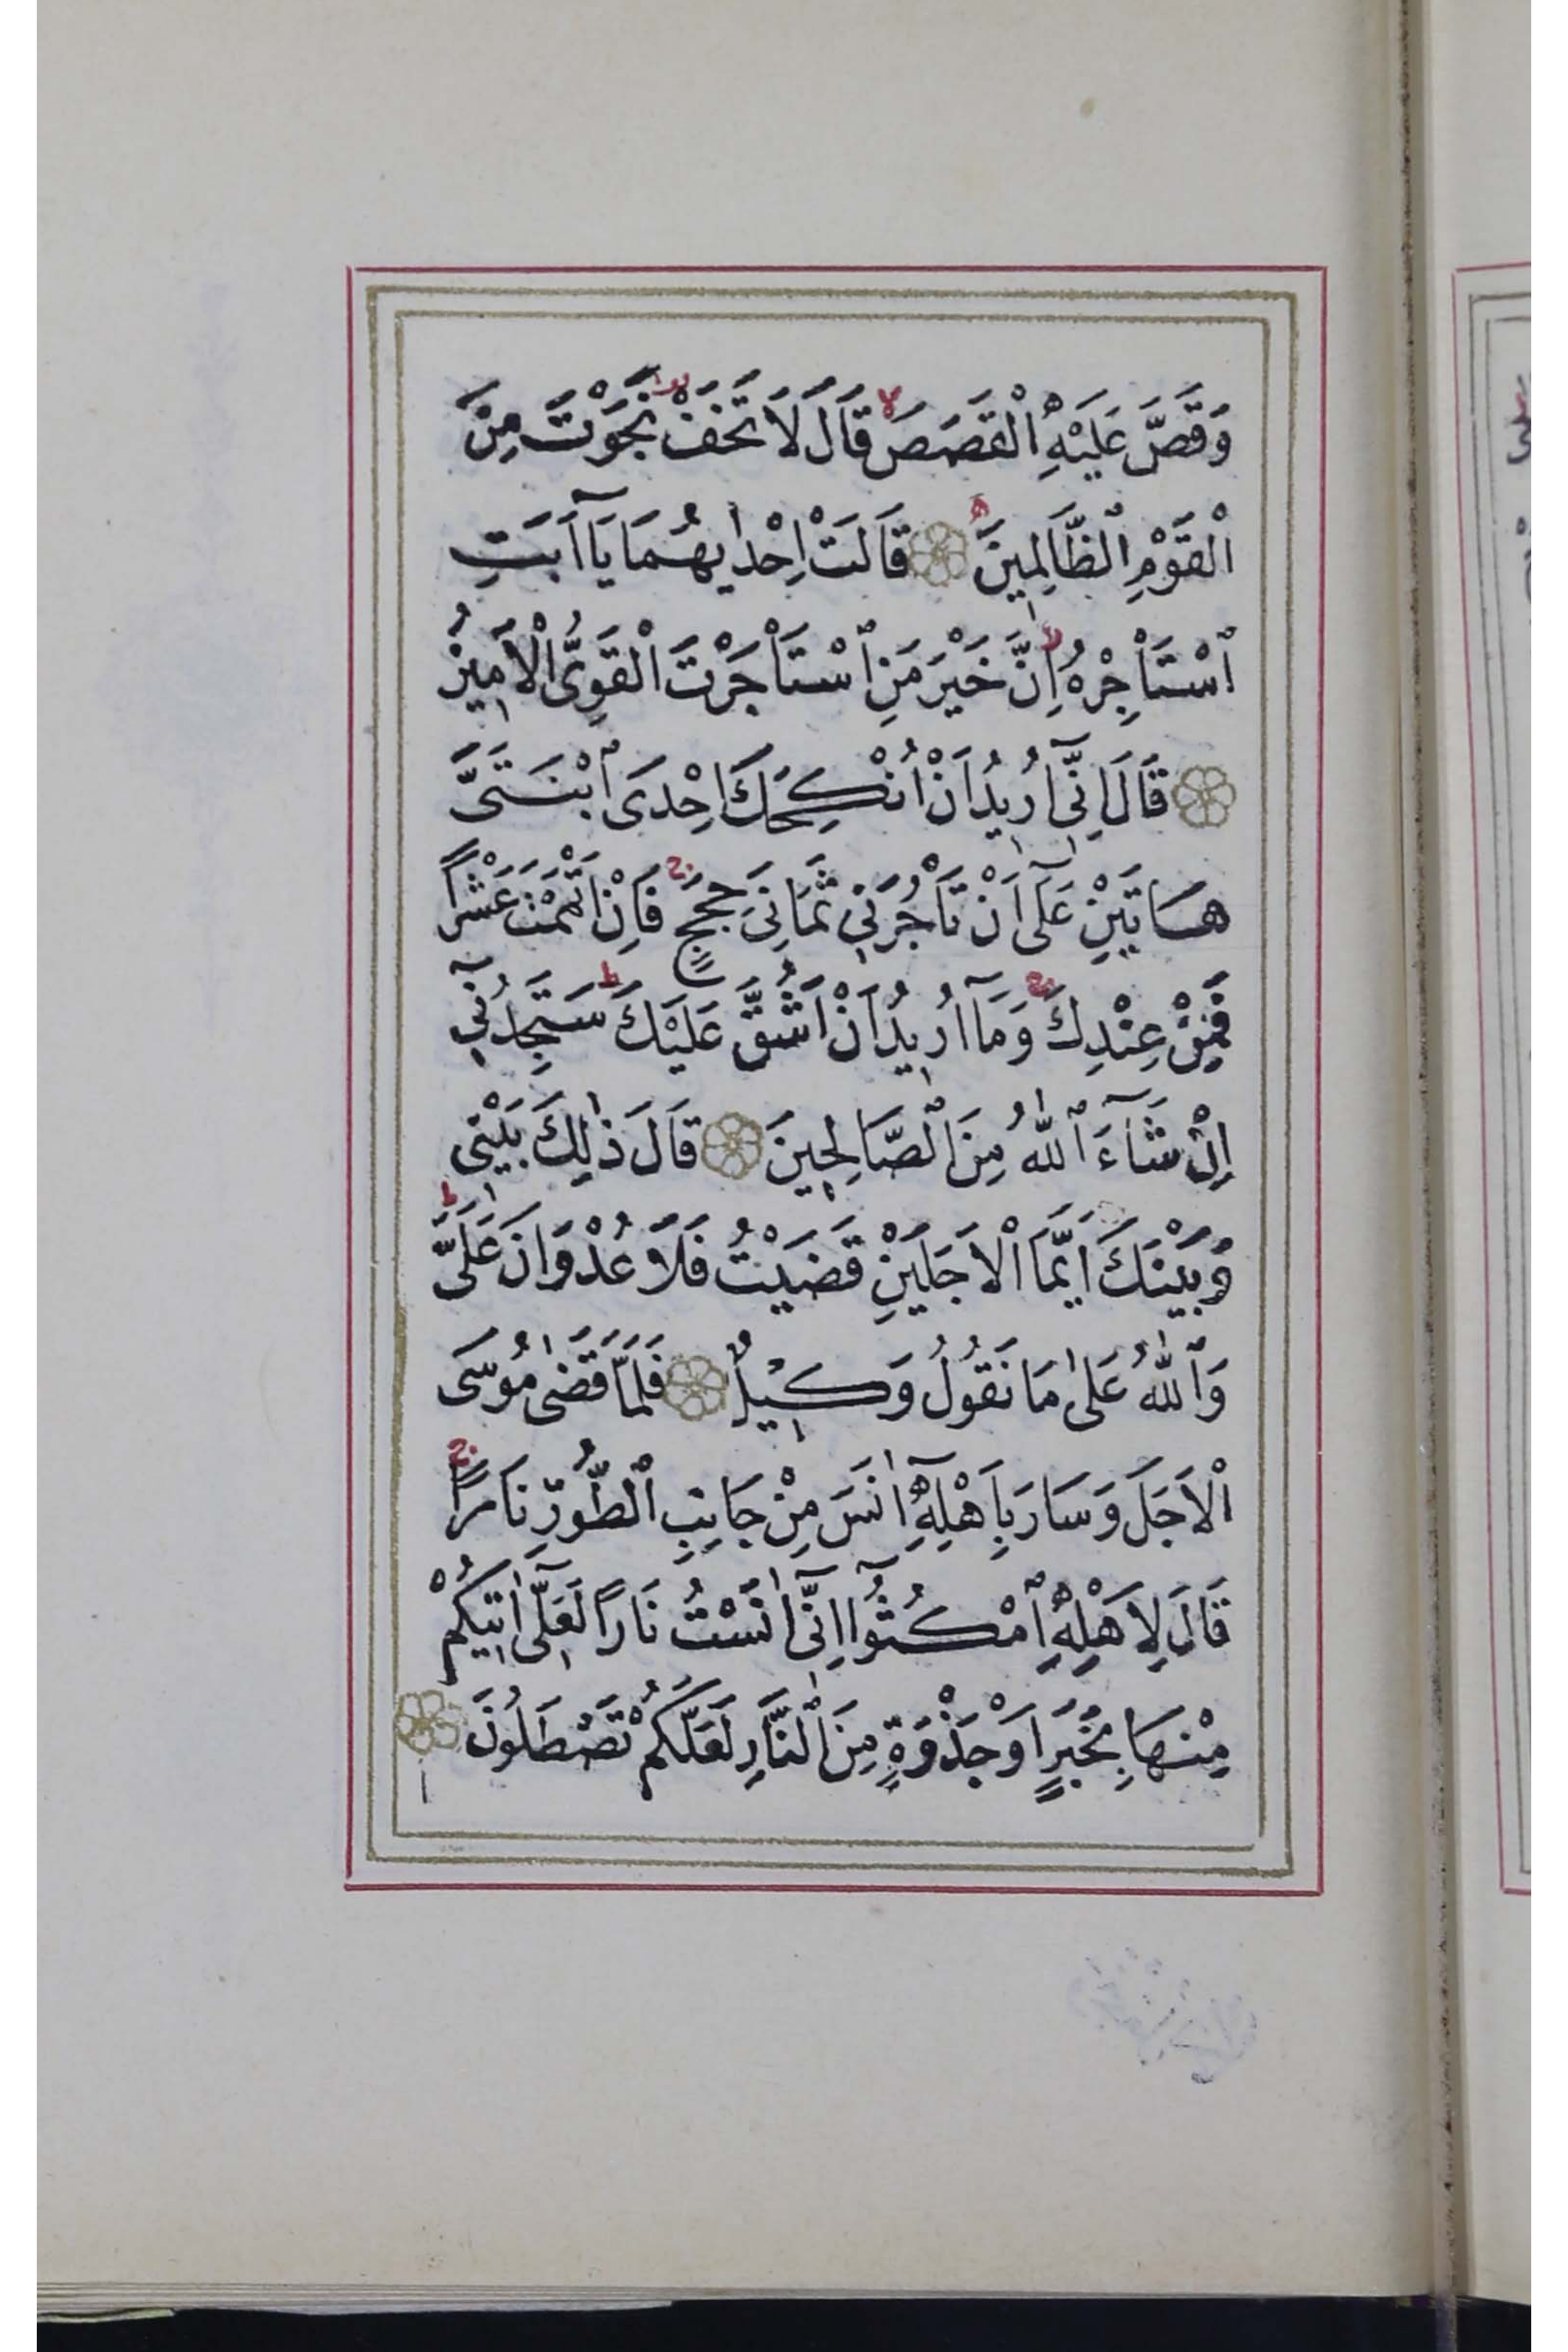 وَقَصَّ عَلَيْهِ الْقَصَصَ لا قَالَ لَا تَخَفْ نَجَوْتَ مِنَ
الْقَوْمِ ٱلظَّالِمِينَ ۝ قَالَتْ اِحْدٰيهُمَا يَآ اَبَتِ
ٱسْتَأْجِرْهُ اِنَّ خَيْرَ مَنِ ٱسْتَأْجَرْتَ الْقَوِىُّ الْاَمِينُ
۝ قَالَ اِنِّىٓ اُرِيدُ اَنْ اُنْكِحَكَ اِحْدَى ٱبْنَتَىَّ
هَاتَيْنِ عَلٰٓى اَنْ تَأْجُرَنِى ثَمَانِىَ حِجَجٍ ج فَاِنْ اَتْمَمْتَ عَشْرًا
فَمِنْ عِنْدِكَ ج وَمَآ اُرِيدُ اَنْ اَشُقَّ عَلَيْكَ ط سَتَجِدُنِىٓ
اِنْ شَآءَ ٱللّٰهُ مِنَ ٱلصَّالِحِينَ ۝ قَالَ ذٰلِكَ بَيْنِى
وَبَيْنَكَ اَيَّمَا الْاَجَلَيْنِ قَضَيْتُ فَلَا عُدْوَانَ عَلَىَّ ط
وَٱللّٰهُ عَلٰى مَا نَقُولُ وَكِيلٌ ۝ فَلَمَّا قَضٰى مُوسَى
الْاَجَلَ وَسَارَ بِاَهْلِهِٓ اٰنَسَ مِنْ جَانِبِ ٱلطُّورِ نَارًا ج
قَالَ لِاَهْلِهِ ٱمْكُثُوٓا اِنِّىٓ اٰنَسْتُ نَارًا لَعَلِّىٓ اٰتِيكُمْ
مِنْهَا بِخَبَرٍ اَوْ جَذْوَةٍ مِنَ ٱلنَّارِ لَعَلَّكُمْ تَصْطَلُونَ ۝